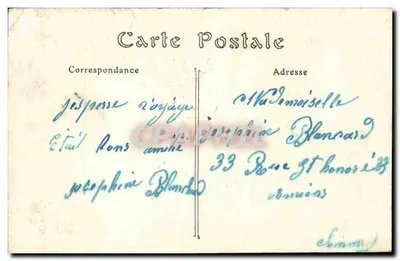 Carte Postale
Correspondance
Adresse
j'espere voyage
Etait bons amitié
josephine Blancard
Mademoiselle
josephine Blancard
33 Rue St honoré 33
amiens
Somme